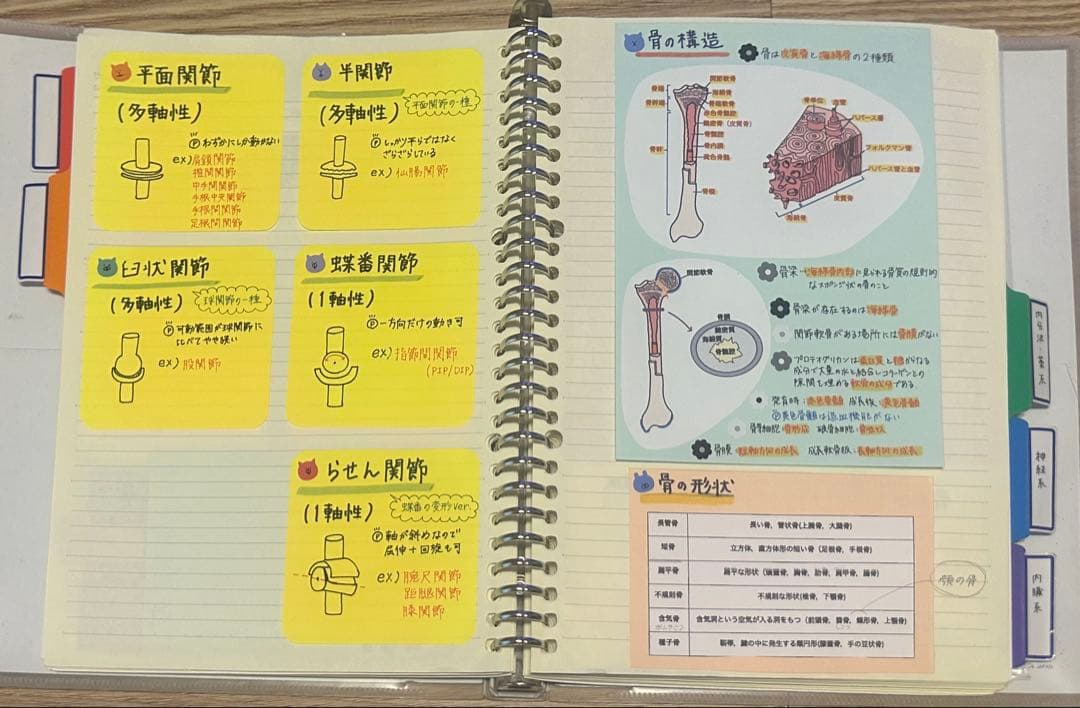 平面関節
(多軸性)
Ⓟわずかにしか動かない
ex)肩鎖関節
椎間関節
中手間関節
手根中央関節
手根間関節
足根間関節
半関節
(多軸性)
平面関節の一種
Ⓟしっかり平らではなく
ざらざらしている
ex)仙腸関節
臼状関節
(多軸性)
球関節の一種
Ⓟ可動範囲が球関節に
比べてやや狭い
ex)股関節
蝶番関節
(1軸性)
Ⓟ一方向だけの動き可
ex)指節間関節
(PIP/DIP)
らせん関節
(1軸性)
蝶番の変形ver.
Ⓟ軸が斜めなので
屈伸+回旋も可
ex)腕尺関節
距腿関節
膝関節
骨の構造
骨は皮質骨と海綿骨の2種類
関節軟骨
骨端
海綿骨
骨幹端
骨端軟骨
赤色骨髄
緻密骨(皮質骨)
骨髄腔
骨幹
骨内膜
黄色骨髄
骨膜
骨単位
血管
ハバース層
フォルクマン管
ハバース管と血管
皮質骨
海綿骨
関節軟骨
骨膜
緻密質
海綿質
骨髄腔
骨梁:海綿骨内部に見られる骨質の規則的
なスポンジ状の骨のこと
骨梁が存在するのは海綿骨
関節軟骨がある場所には骨膜がない
プロテオグリカンは蛋白質と糖からなる
成分で大量の水と結合しコラーゲンとの
隙間を埋める軟骨の成分である.
発育時:赤色骨髄 成長後:黄色骨髄
Ⓟ黄色骨髄は造血機能がない
骨芽細胞:骨形成 破骨細胞:骨吸収
骨膜:短軸方向の成長 成長軟骨板:長軸方向の成長
骨の形状
長管骨 長い骨、管状骨(上腕骨、大腿骨)
短骨 立方体、直方体形の短い骨(足根骨、手根骨)
扁平骨 扁平な形状(頭蓋骨、胸骨、肋骨、肩甲骨、腸骨)
不規則骨 不規則な形状(椎骨、下顎骨)
顎の骨
含気骨 含気洞という空気が入る洞をもつ(前頭骨、篩骨、蝶形骨、上顎骨)
種子骨 靭帯、腱の中に発生する類円形(膝蓋骨、手の豆状骨)
神経系
内臓系